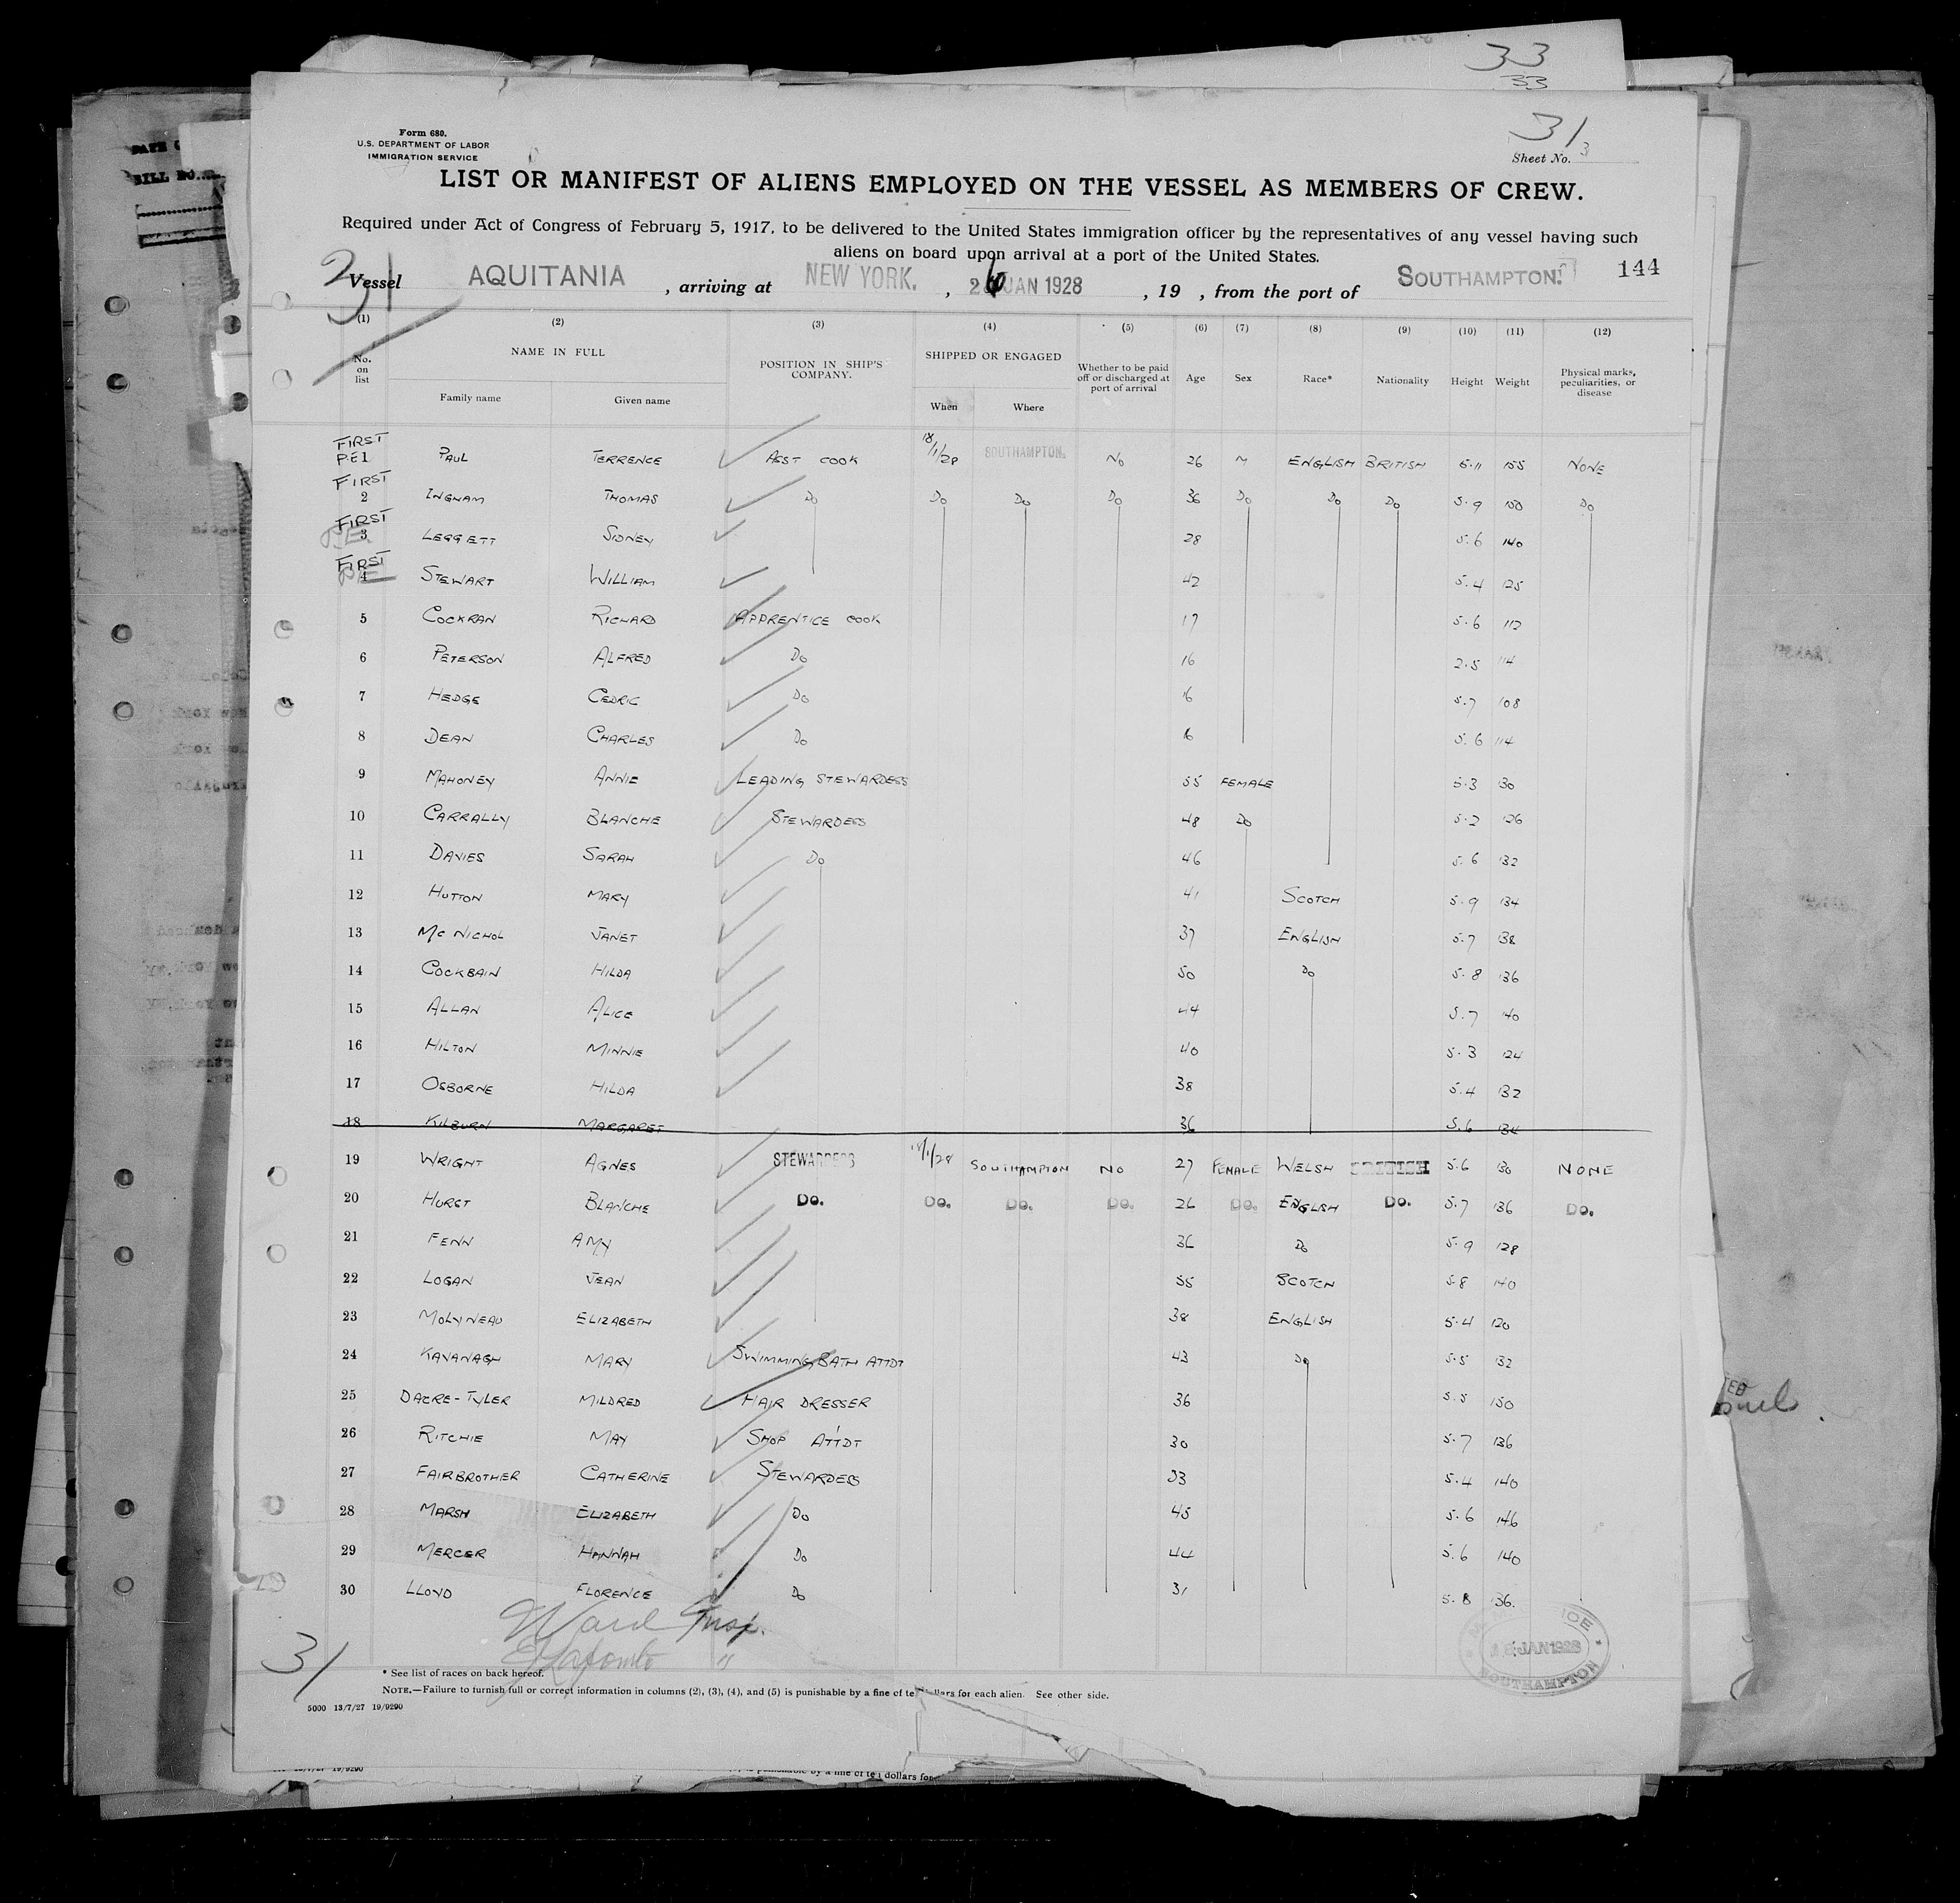 33
33
31
Form 680.
U.S. DEPARTMENT OF LABOR
IMMIGRATION SERVICE
Sheet No. 3
LIST OR MANIFEST OF ALIENS EMPLOYED ON THE VESSEL AS MEMBERS OF CREW.
Required under Act of Congress of February 5, 1917, to be delivered to the United States immigration officer by the representatives of any vessel having such
aliens on board upon arrival at a port of the United States.
31
Vessel AQUITANIA , arriving at NEW YORK. , 26 JAN 1928 , 19 , from the port of SOUTHAMPTON. 144
(1) (2) (3) (4) (5) (6) (7) (8) (9) (10) (11) (12)
No. on list NAME IN FULL Family name Given name POSITION IN SHIP'S COMPANY. SHIPPED OR ENGAGED When Where Whether to be paid off or discharged at port of arrival Age Sex Race* Nationality Height Weight Physical marks, peculiarities, or disease
FIRST
PE 1 PAUL TERRENCE ASST COOK 18/1/28 SOUTHAMPTON. NO 26 M ENGLISH BRITISH 5.11 155 NONE
FIRST
2 INGHAM THOMAS DO DO DO DO 36 DO DO DO 5.9 150 DO
FIRST
PE 3 LEGGETT SIDNEY 28 5.6 140
FIRST
PE 4 STEWART WILLIAM 42 5.4 125
5 COCKRAN RICHARD APPRENTICE COOK 17 5.6 112
6 PETERSON ALFRED DO 16 2.5 114
7 HEDGE CEDRIC DO 16 5.7 108
8 DEAN CHARLES DO 16 5.6 114
9 MAHONEY ANNIE LEADING STEWARDESS 55 FEMALE 5.3 130
10 CARRALLY BLANCHE STEWARDESS 48 DO 5.2 126
11 DAVIES SARAH DO 46 5.6 132
12 HUTTON MARY 41 SCOTCH 5.9 134
13 MC NICHOL JANET 37 ENGLISH 5.7 138
14 COCKBAIN HILDA 50 DO 5.8 136
15 ALLAN ALICE 44 5.7 140
16 HILTON MINNIE 40 5.3 124
17 OSBORNE HILDA 38 5.4 132
18 KILBURN MARGARET 36 5.6 134
19 WRIGHT AGNES STEWARDESS 18/1/28 SOUTHAMPTON NO 27 FEMALE WELSH BRITISH 5.6 130 NONE
20 HURST BLANCHE DO. DO. DO. DO. 26 DO. ENGLISH DO. 5.7 136 DO.
21 FENN AMY 36 DO 5.9 128
22 LOGAN JEAN 55 SCOTCH 5.8 140
23 MOLYNEAU ELIZABETH 38 ENGLISH 5.4 120
24 KAVANAGH MARY SWIMMING BATH ATTDT 43 DO 5.5 132
25 DACRE-TYLER MILDRED HAIR DRESSER 36 5.5 150
26 RITCHIE MAY SHOP ATTDT 30 5.7 136
27 FAIRBROTHER CATHERINE STEWARDESS 33 5.4 140
28 MARSH ELIZABETH DO 45 5.6 146
29 MERCER HANNAH DO 44 5.6 140
30 LLOYD FLORENCE DO 31 5.8 136.
Ward Insp.
"
31
JAN 1928
SOUTHAMPTON
* See list of races on back hereof.
NOTE.—Failure to furnish full or correct information in columns (2), (3), (4), and (5) is punishable by a fine of ten dollars for each alien. See other side.
5000 13/7/27 19/9290